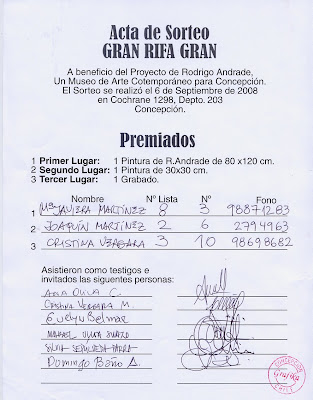 Acta de Sorteo
GRAN RIFA GRAN
A beneficio del Proyecto de Rodrigo Andrade,
Un Museo de Arte Cotemporáneo para Concepción.
El Sorteo se realizó el 6 de Septiembre de 2008
en Cochrane 1298, Depto. 203
Concepción.
Premiados
1 Primer Lugar: 1 Pintura de R.Andrade de 80 x120 cm.
2 Segundo Lugar: 1 Pintura de 30x30 cm.
3 Tercer Lugar: 1 Grabado.
Nombre Nº Lista Nº Fono
1 Mª JAVIERA MARTÍNEZ 8 3 98871283
2 JOAQUÍN MARTÍNEZ 2 6 2794963
3 CRISTINA VERGARA 3 10 98698682
Asistieron como testigos e
invitados las siguentes personas:
CRISTINA VERGARA M.
Evelyn Belmar
SILVIA SEPULVEDA PARRA
Domingo Baño A.